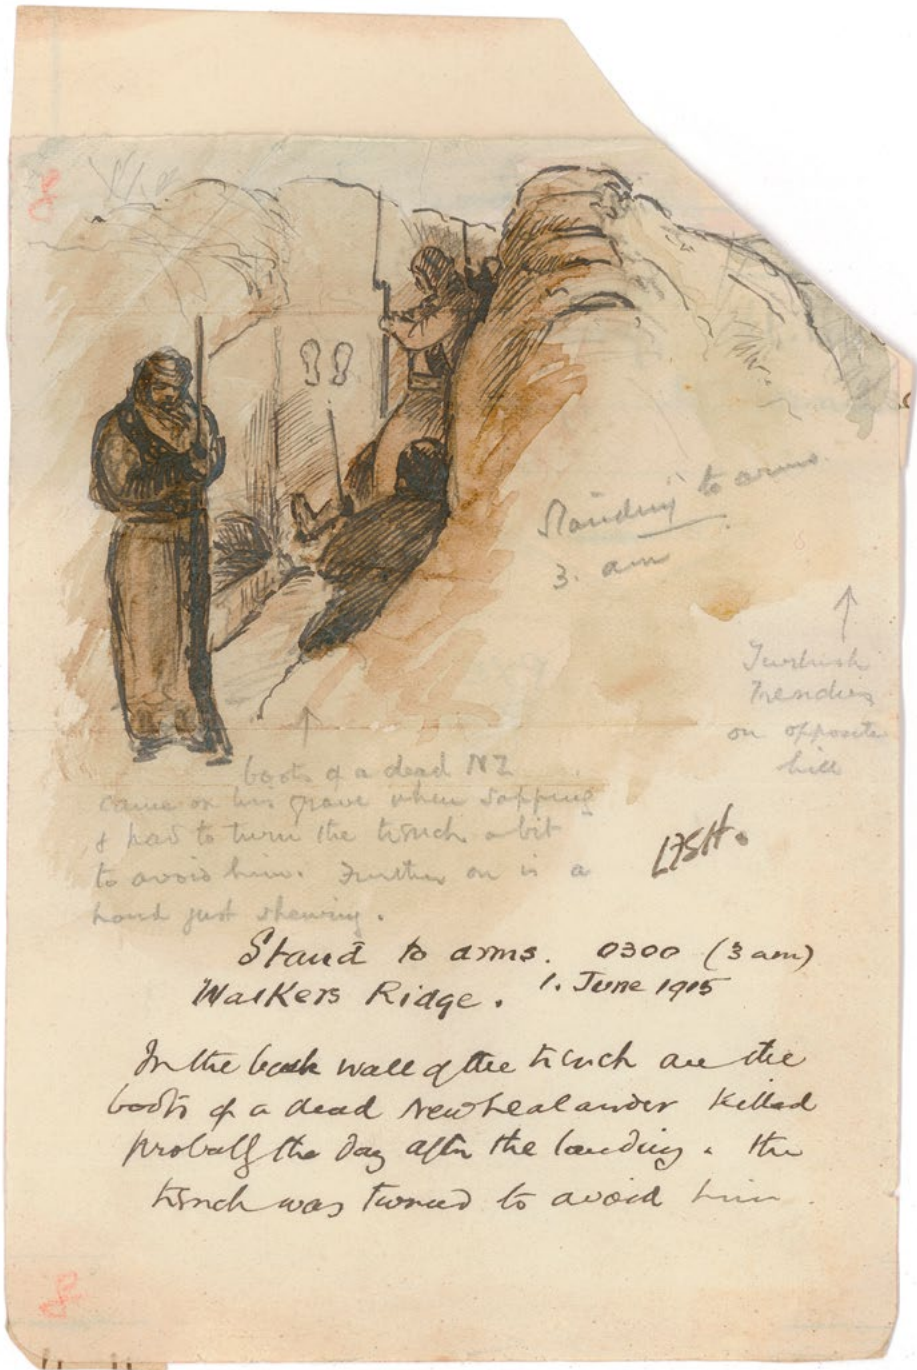 Standing to arms.
3. am
Turkish
Trenches
on opposite
hill
boots of a dead NZ
came on his grave when sapping
& had to turn the trench a bit
to avoid him. Further on is a
hand just shewing.
Stand to arms. 0300 (3 am)
Walkers Ridge. 1. June 1915
In the back wall of the trench are the
boots of a dead New Zealander killed
probally the day after the landing. the
trench was turned to avoid him.